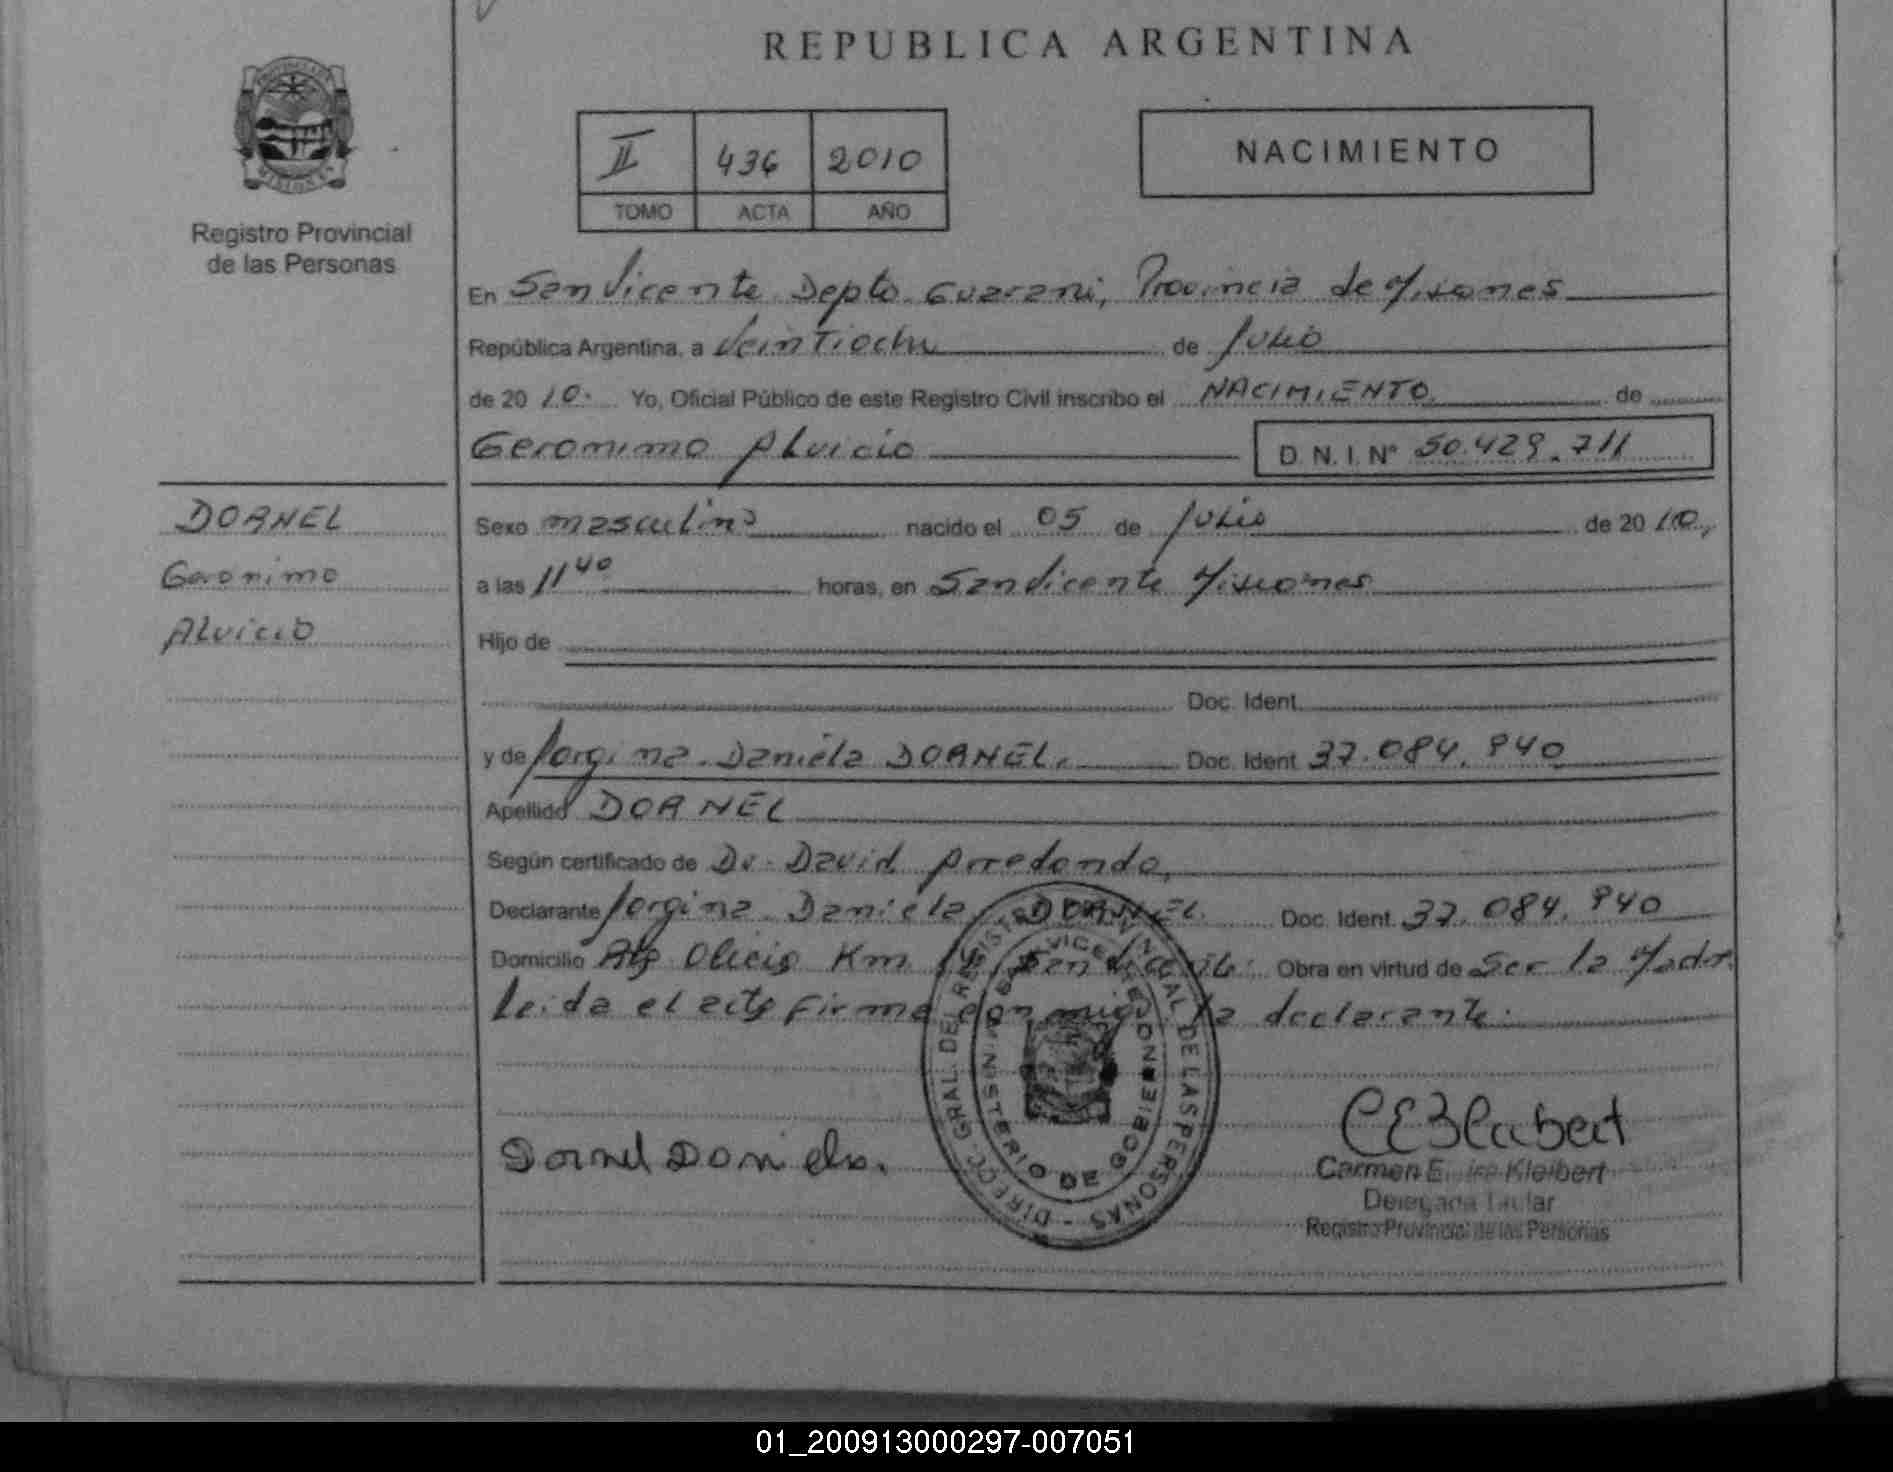 REPUBLICA ARGENTINA
PROVINCIA DE
MISIONES
Registro Provincial
de las Personas
II 436 2010
TOMO ACTA AÑO
NACIMIENTO
En San Vicente Depto Guarani, Provincia de Misiones
República Argentina, a Veintiocho de Julio
de 2010. Yo, Oficial Público de este Registro Civil inscribo el NACIMIENTO de
Geronimo Alvicio D.N.I. N° 50.429.711
DORNEL
Geronimo
Alvicio
Sexo masculino nacido el 05 de Julio de 2010,
a las 11 40 horas, en San Vicente Misiones
Hijo de
Doc. Ident.
y de Jorgina Daniela DORNEL. Doc. Ident. 37.084.940
Apellido DORNEL
Según certificado de Dr. David Arredondo,
Declarante Jorgina Daniela DORNEL. Doc. Ident. 37.084.940
Domicilio Km San Vicente. Obra en virtud de Ser la Madre
Leida el acta firma con migo la declarante.
Dornel Daniela.
DIRECC. GRAL. DEL REGISTRO PROVINCIAL DE LAS PERSONAS -
MINISTERIO DE GOBIERNO
Carmen E. Kleibert
Delegada Titular
Registro Provincial de las Personas
01_200913000297-007051